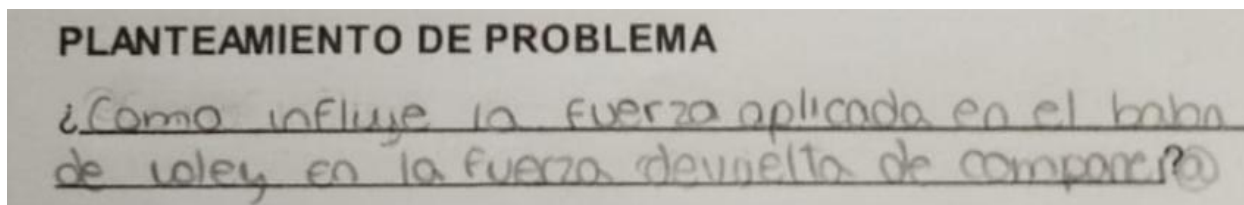 PLANTEAMIENTO DE PROBLEMA
¿Como influye la fuerza aplicada en el balon
de voley en la fuerza devuelta de compañera?